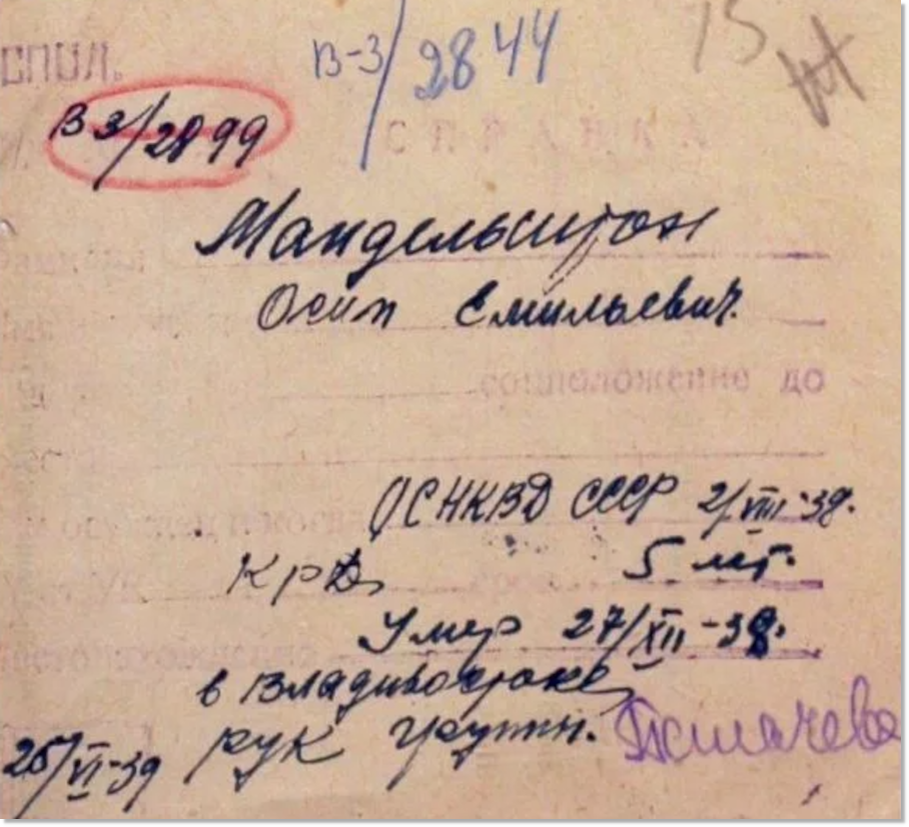 СПОЛ.
В-3/2844
15
В3/2899
СПРАВКА
Мандельштам
Осип Емильевич.
соцположение до
ОСНКВД СССР 2/VIII-38.
КРД 5 лет.
Умер 27/XII-38.
в Владивостоке
рук группы.
25/VI-39